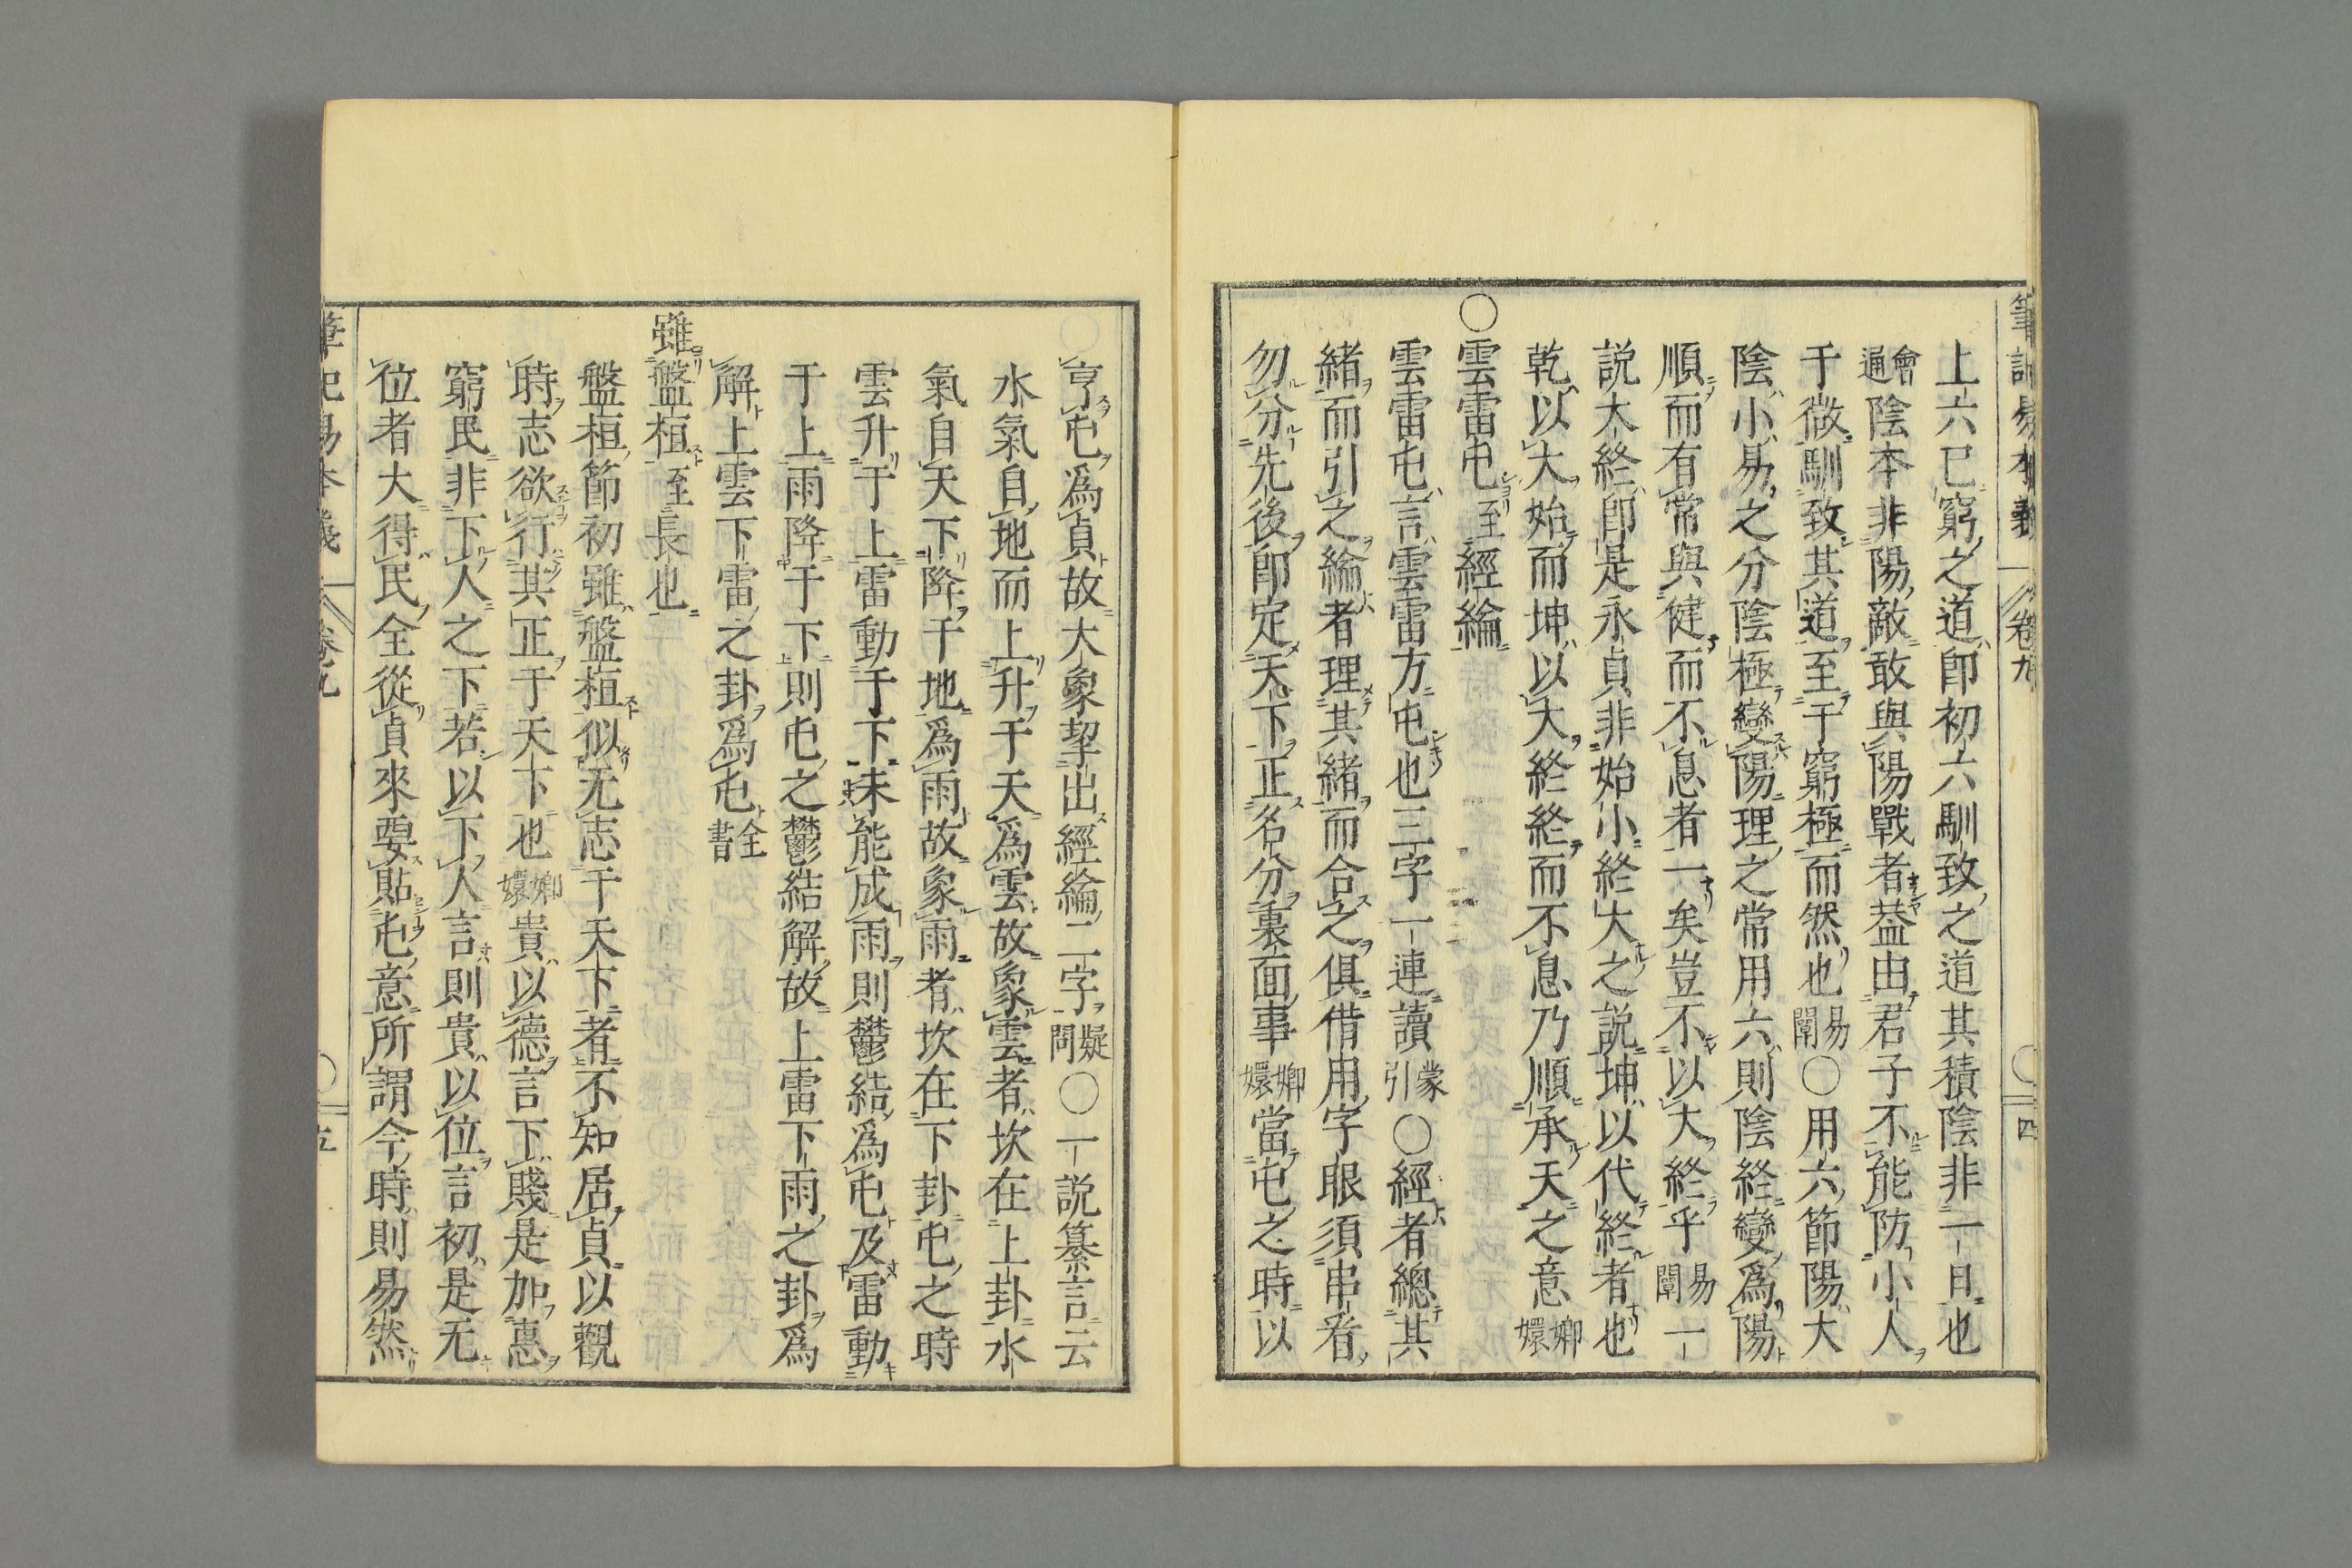 上六已窮之道即初六馴致之道其積陰非一日也
會通陰本非陽敵敢與陽戰者葢由君子不能防小人
于微馴致其道至于窮極而然也易闡○用六節陽大
陰小易之分陰極變陽理之常用六則陰終變爲陽
順而有常與健而不息者一矣豈不以大終乎易闡一
説大終即是永貞非始小終大之説坤以代終者也
乾以大始而坤以大終終而不息乃順承天之意嫏嬛
○雲雷屯至經綸
雲雷屯言雲雷方屯也三字一連讀蒙引○經者總其
緒而引之綸者理其緒而合之俱借用字眼須串看
勿分先後即定天下正名分裏面事嫏嬛當屯之時以
亨屯爲貞故大象挈出經綸二字疑問○一説纂言云
水氣自地而上升于天爲雲故象雲者坎在上卦水
氣自天下降于地爲雨故象雨者坎在下卦屯之時
雲升于上雷動于下未能成雨則鬱結爲屯及雷動
于上雨降于下則屯之鬱結解故上雷下雨之卦爲
解上雲下雷之卦爲屯全書
雖盤桓至長也
盤桓節初雖盤桓似无志于天下者不知居貞以觀
時志欲行其正于天下也嫏嬛貴以德言下賤是加惠
窮民非下人之下若以下人言則貴以位言初是无
位者大得民全從貞來要貼屯意所謂今時則易然
筆記易本義
卷九
四
五